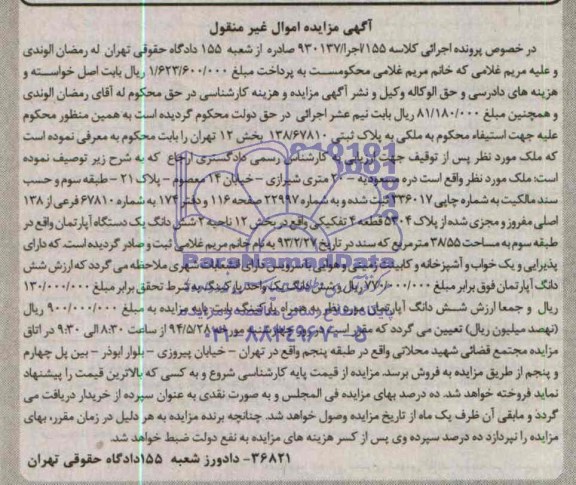 آگهی مزایده اموال غیر منقول
در خصوص پرونده اجرائی کلاسه ۱۵۵/اجرا/۹۳۰۱۳۷ صادره از شعبه ۱۵۵ دادگاه حقوقی تهران له رمضان الوندی
و علیه مریم غلامی که خانم مریم غلامی محکومست به پرداخت مبلغ ۱/۶۲۳/۶۰۰/۰۰۰ ریال بابت اصل خواسته و
هزینه های دادرسی و حق الوکاله وکیل و نشر آگهی مزایده و هزینه کارشناسی در حق محکوم له آقای رمضان الوندی
و همچنین مبلغ ۸۱/۱۸۰/۰۰۰ ریال بابت نیم عشر اجرائی در حق دولت محکوم گردیده است به همین منظور محکوم
علیه جهت استیفاء محکوم به ملکی به پلاک ثبتی ۱۳۸/۶۷۸۱۰ بخش ۱۲ تهران را بابت محکوم به معرفی نموده است
که ملک مورد نظر پس از توقیف جهت ارزیابی به کارشناس رسمی دادگستری ارجاع که به شرح زیر توصیف نموده
است: ملک مورد نظر واقع است دره مسعودیه - ۲۰ متری شیرازی - خیابان ۱۴ معصوم - پلاک ۲۱ - طبقه سوم و حسب
سند مالکیت به شماره چاپی ۳۳۶۰۱۷ ثبت شده و به شماره ۲۲۹۹۷ صفحه ۱۱۶ و دفتر ۱۷۴ به شماره ۶۷۸۱۰ فرعی از ۱۳۸
اصلی مفروز و مجزی شده از پلاک ۵۳۰۴ قطعه ۴ تفکیکی واقع در بخش ۱۲ ناحیه ۲ شش دانگ یک دستگاه آپارتمان واقع در
طبقه سوم به مساحت ۳۸/۵۵ مترمربع که سند در تاریخ ۹۳/۲/۲۷ به نام خانم مریم غلامی ثبت و صادر گردیده است. که دارای
پذیرایی و یک خواب و آشپزخانه و کابینت زمینی و هوایی با سرویس دارای انشعابات شهری ملاحظه می گردد که ارزش شش
دانگ آپارتمان فوق برابر مبلغ ۷۷۰/۰۰۰/۰۰۰ ریال و شش دانگ یک واحد پارکینگ به شرط تحقق برابر مبلغ ۱۳۰/۰۰۰/۰۰۰
ریال و جمعا ارزش شش دانگ آپارتمان مورد نظر به همراه پارکینگ بابت پایه مزایده به مبلغ ۹۰۰/۰۰۰/۰۰۰ ریال
(نهصد میلیون ریال) تعیین می گردد که مقرر است در روز چهارشنبه مورخه ۹۴/۵/۲۸ از ساعت ۸:۳۰ الی ۹:۳۰ در اتاق
مزایده مجتمع قضائی شهید محلاتی واقع در طبقه پنجم واقع در تهران - خیابان پیروزی - بلوار ابوذر - بین پل چهارم
و پنجم از طریق مزایده به فروش برسد. مزایده از قیمت پایه کارشناسی شروع و به کسی که بالاترین قیمت را پیشنهاد
نماید فروخته خواهد شد. ده درصد بهای مزایده فی المجلس و به صورت نقدی به عنوان سپرده از خریدار دریافت می
گردد و مابقی آن ظرف یک ماه از تاریخ مزایده وصول خواهد شد. چنانچه برنده مزایده به هر دلیل در زمان مقرر، بهای
مزایده را نپردازد ده درصد سپرده وی پس از کسر هزینه های مزایده به نفع دولت ضبط خواهد شد.
۳۶۸۲۱- دادورز شعبه ۱۵۵ دادگاه حقوقی تهران
ParsNamadData
۰۲۱-۸۸۳۴۹۶۷۰-۵